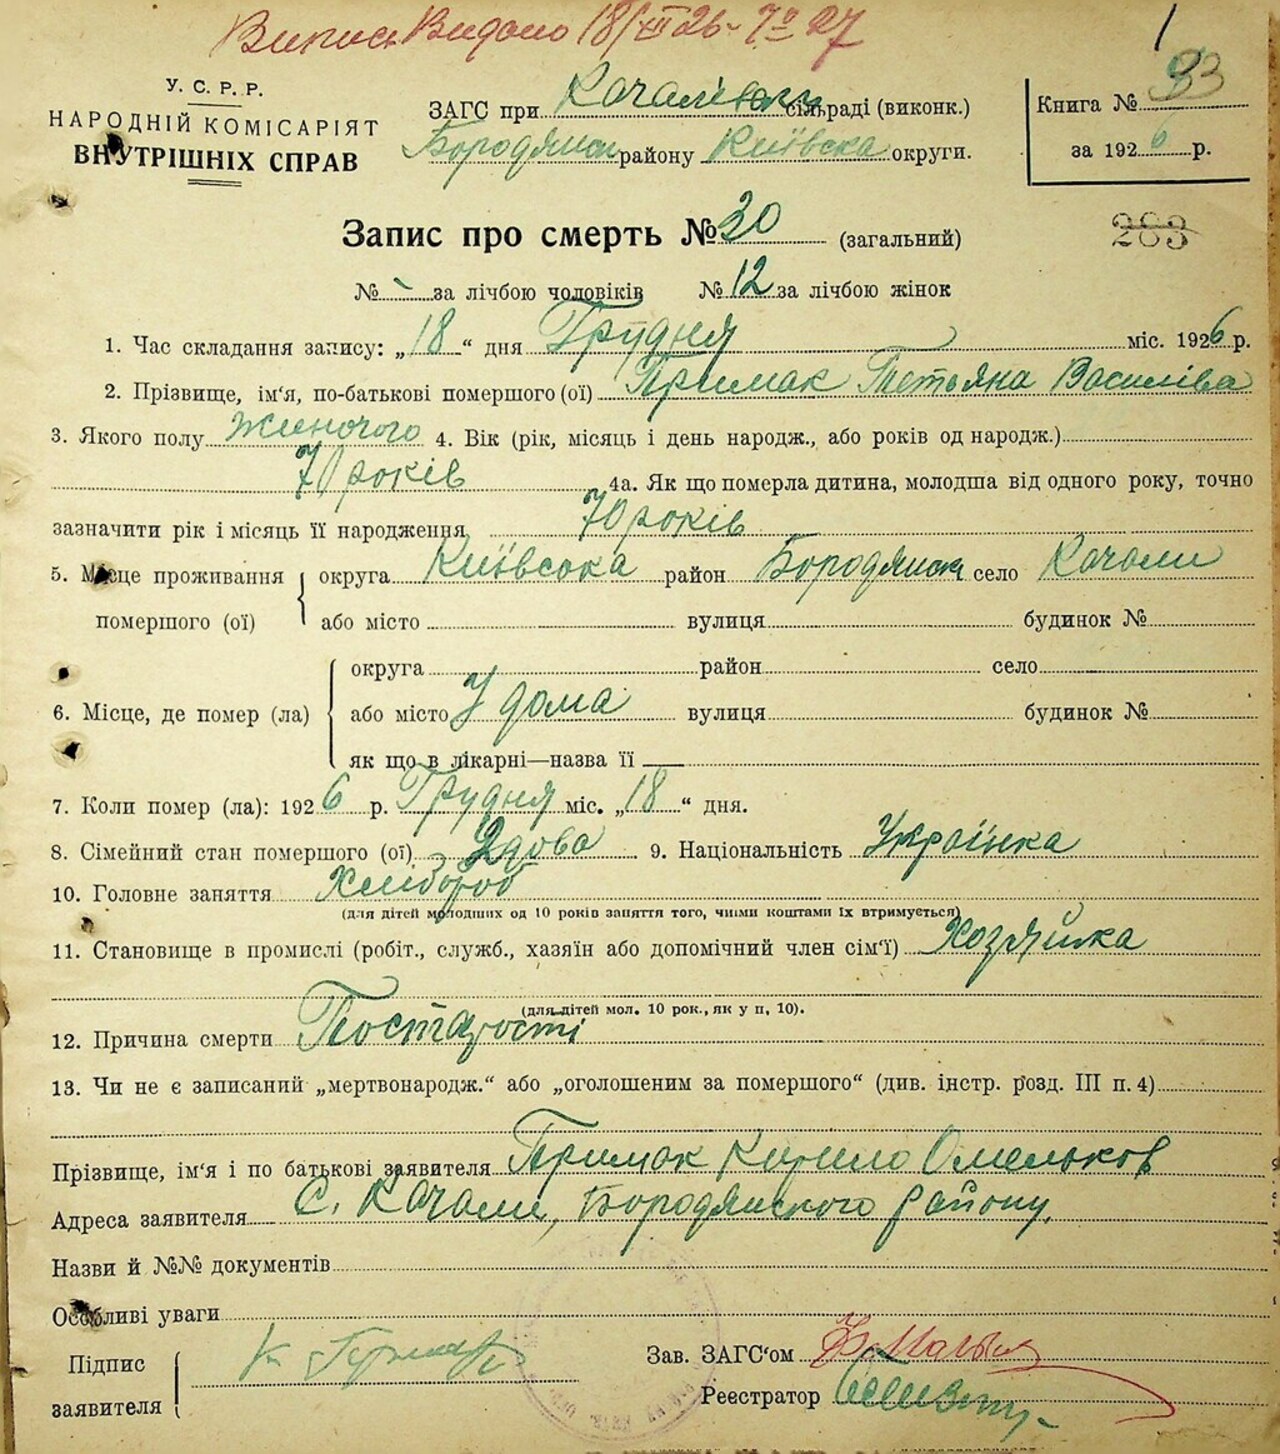 Випись Видано 18/XII 26 1
У. С. Р. Р.
НАРОДНІЙ КОМІСАРІЯТ
ВНУТРІШНІХ СПРАВ
ЗАГС при Качалівській сільраді (виконк.)
Бородянськ району Київська округи.
33
Книга №
за 1926 р.
Запис про смерть № 30 (загальний)
283
№ - за лічбою чоловіків № 12 за лічбою жінок
1. Час складання запису: „18“ дня Грудня міс. 1926 р.
2. Прізвище, ім'я, по-батькові помершого (ої) Примак Тетьяна Василівa
3. Якого полу Жиночого 4. Вік (рік, місяць і день народж., або років од народж.)
70 років 4а. Як що померла дитина, молодша від одного року, точно
зазначити рік і місяць її народження 70 років
5. Місце проживання помершого (ої) округа Київська район Бородянськ село Качали
або місто вулиця будинок №
6. Місце, де помер (ла) округа район село
або місто У дома вулиця будинок №
як що в лікарні—назва її
7. Коли помер (ла): 1926 р. Грудня міс. „18“ дня.
8. Сімейний стан помершого (ої) Здова 9. Національність Українка
10. Головне заняття Хлибороб
(для дітей молодших од 10 років заняття того, чиїми коштами їх втримується)
11. Становище в промислі (робіт., служб., хазяїн або допомічний член сім'ї) Хозяйка
(для дітей мол. 10 рок., як у п, 10).
12. Причина смерти Постарості
13. Чи не є записаний „мертвонародж.“ або „оголошеним за помершого“ (див. інстр. розд. III п. 4)
Прізвище, ім'я і по батькові заявителя Примак Кирило Омельков
Адреса заявителя С. Качали, Бородянского району.
Назви й №№ документів
Особливі уваги
Підпис заявителя К
Зав. ЗАГС'ом
Реєстратор